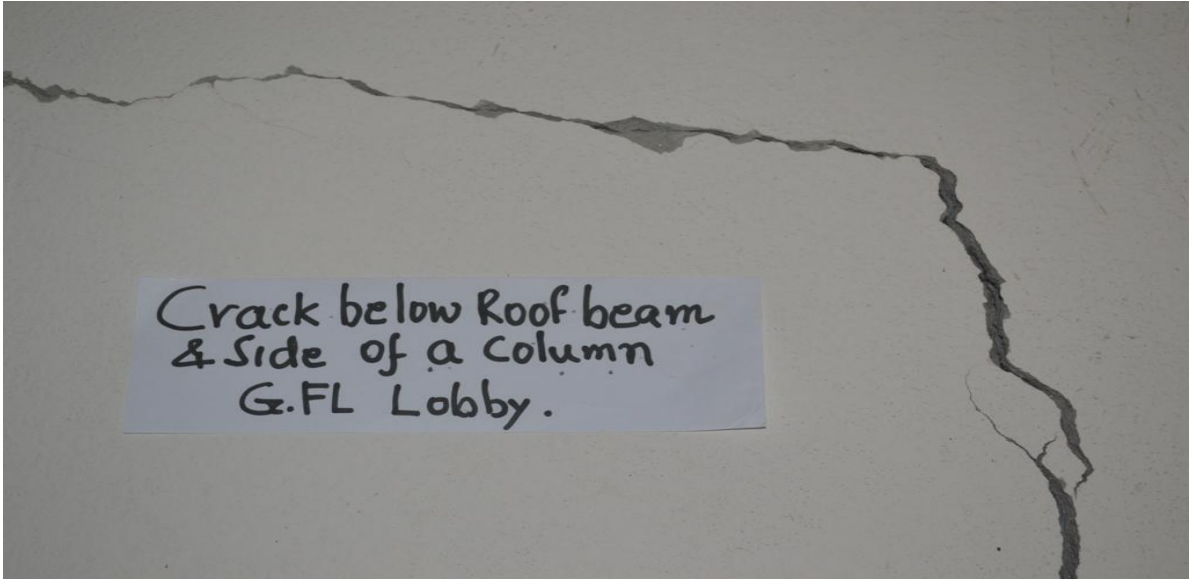 Crack below Roof beam
& Side of a Column
G.FL Lobby.